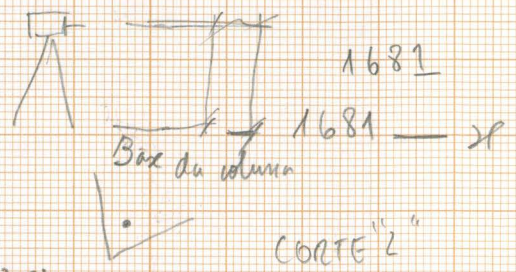 1681
1681 —
Base da coluna
CORTE "2"